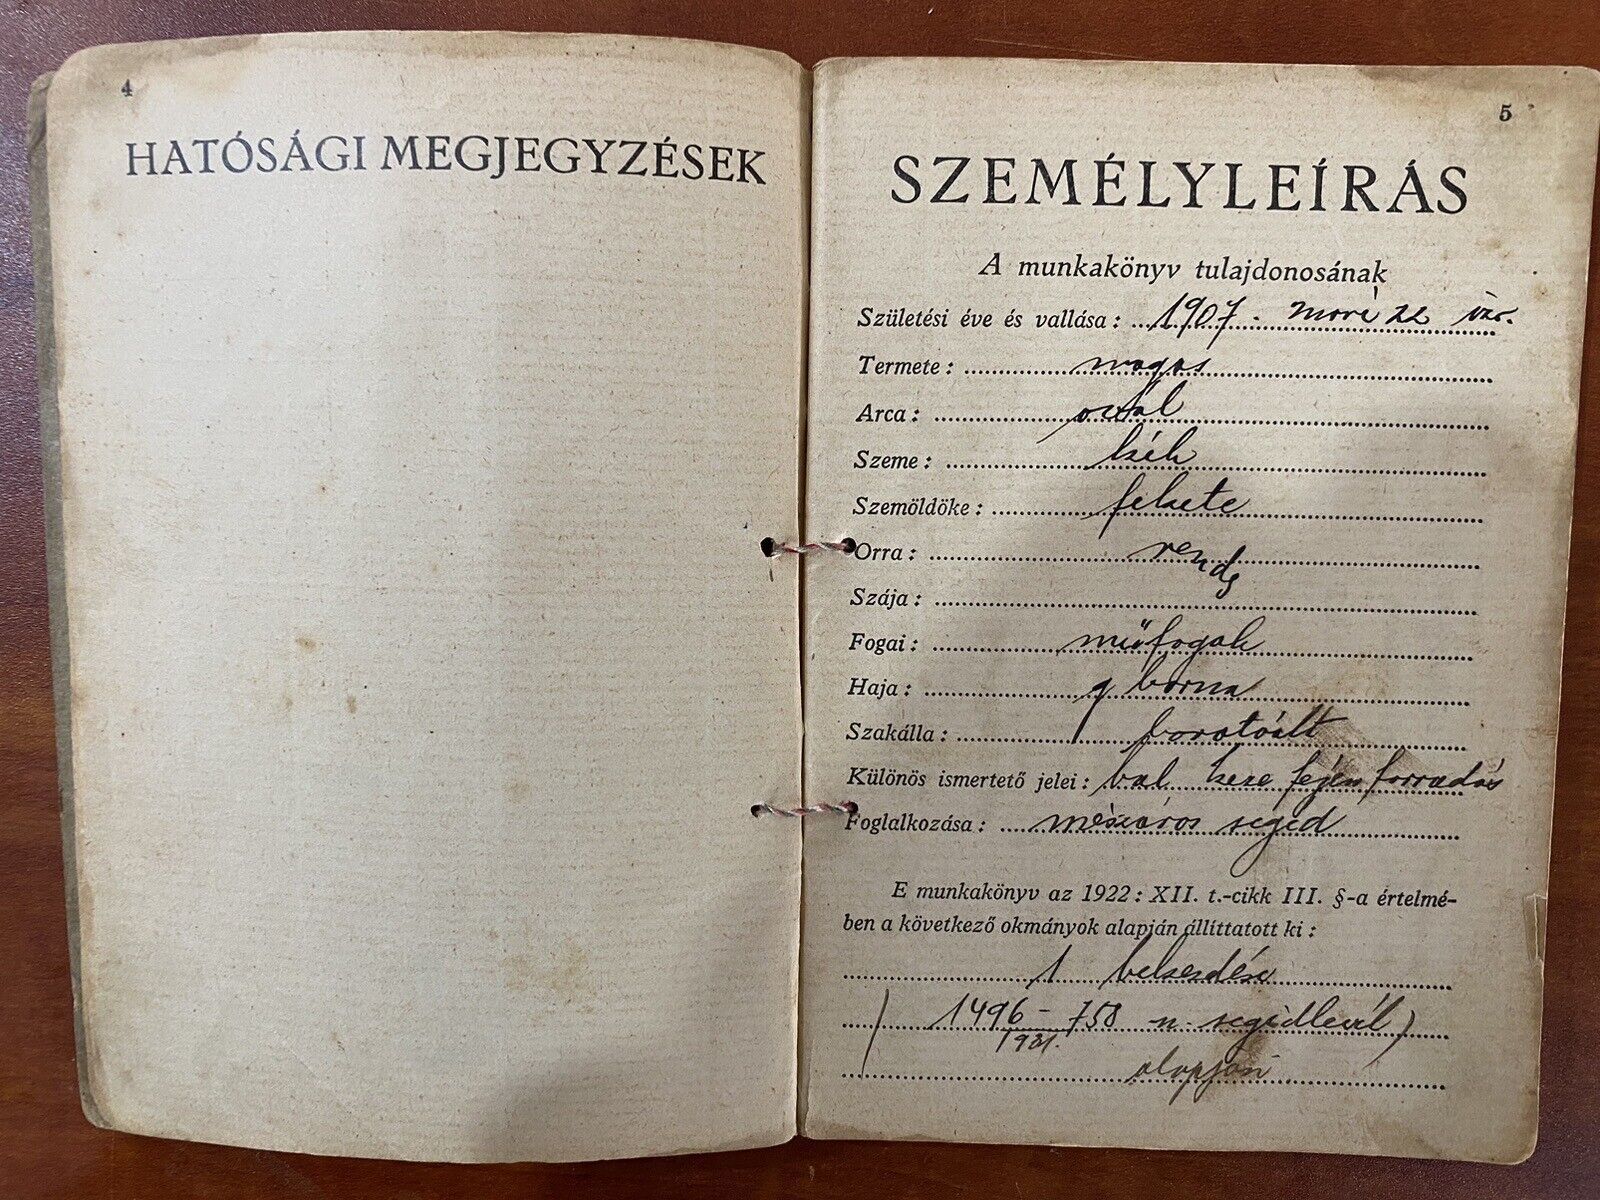 4
HATÓSÁGI MEGJEGYZÉSEK
5
SZEMÉLYLEÍRÁS
A munkakönyv tulajdonosának
Születési éve és vallása: 1907. 22 izr.
Termete: magas
Arca: ovál
Szeme: kék
Szemöldöke: fekete
Orra: rends
Szája:
Fogai: műfogak
Haja: g barna
Szakálla: borotvált
Különös ismertető jelei: bal keze fején forradás
Foglalkozása: mészáros segéd
E munkakönyv az 1922: XII. t.-cikk III. §-a értelmé-
ben a következő okmányok alapján állíttatott ki:
1
( 1496-758 n segédlevél )
1931.
alapján